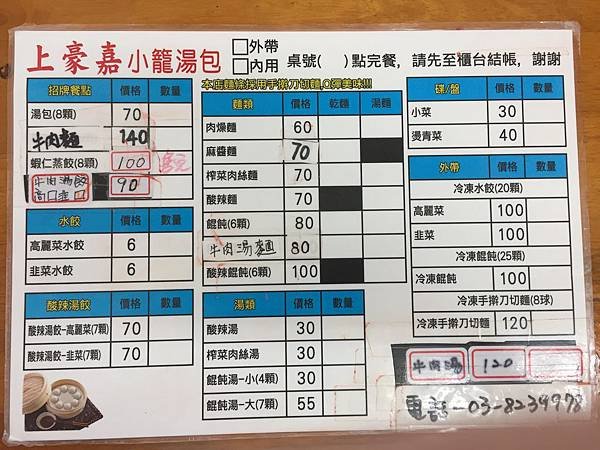 上豪嘉小籠湯包 □外帶 □內用 桌號( )點完餐，請先至櫃台結帳，謝謝
招牌餐點 價格 數量
湯包(8顆) 70
牛肉麵 140
蝦仁蒸餃(8顆) 100
牛肉湯餃 90
水餃 價格 數量
高麗菜水餃 6
韭菜水餃 6
酸辣湯餃 價格 數量
酸辣湯餃-高麗菜(7顆) 70
酸辣湯餃-韭菜(7顆) 70
本店麵條採用手擀刀切麵,Q彈美味!!!
麵類 價格 乾麵 湯麵
肉燥麵 60
麻醬麵 70
榨菜肉絲麵 70
酸辣麵 70
餛飩(6顆) 80
牛肉湯麵 80
酸辣餛飩(6顆) 100
湯類 價格 數量
酸辣湯 30
榨菜肉絲湯 30
餛飩湯-小(4顆) 30
餛飩湯-大(7顆) 55
碟/盤 價格 數量
小菜 30
燙青菜 40
外帶 價格 數量
冷凍水餃(20顆)
高麗菜 100
韭菜 100
冷凍餛飩(25顆)
冷凍餛飩 100
冷凍手擀刀切麵(8球)
冷凍手擀刀切麵 120
牛肉湯 120
電話-03-8239978